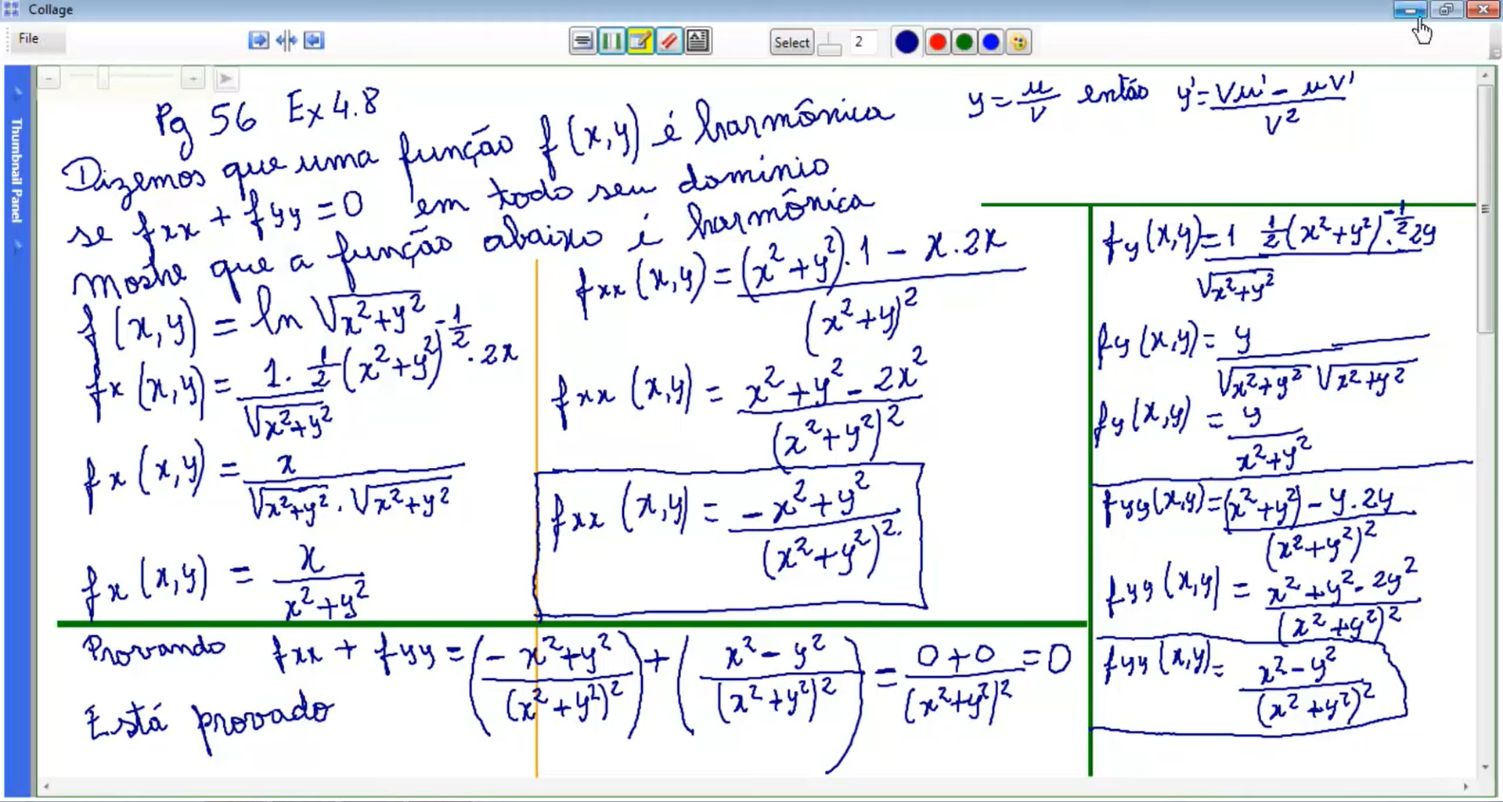 Collage
File
Select
2
Thumbnail Panel
Pg 56 Ex 4.8
Dizemos que uma função f(x,y) é harmônica
se fxx + fyy = 0 em todo seu domínio
mostre que a função abaixo é harmônica
f(x,y) = ln √(x²+y²)
fx(x,y) = 1 · 1/2 (x²+y²)^(-1/2) · 2x / √(x²+y²)
fx(x,y) = x / (√(x²+y²) · √(x²+y²))
fx(x,y) = x / (x²+y²)
y = u/v então y' = (vu' - uv') / v²
fxx(x,y) = ((x²+y²)·1 - x·2x) / (x²+y)²
fxx(x,y) = (x²+y² - 2x²) / (x²+y²)²
fxx(x,y) = (-x²+y²) / (x²+y²)²
fy(x,y) = 1 1/2 (x²+y²)^(-1/2) · 2y / √(x²+y²)
fy(x,y) = y / (√(x²+y²) √(x²+y²))
fy(x,y) = y / (x²+y²)
fyy(x,y) = ((x²+y²) - y·2y) / (x²+y²)²
fyy(x,y) = (x²+y² - 2y²) / (x²+y²)²
fyy(x,y) = (x² - y²) / (x²+y²)²
Provando fxx + fyy = ((-x²+y²) / (x²+y²)²) + ((x² - y²) / (x²+y²)²) = (0+0) / (x²+y²)² = 0
Está provado